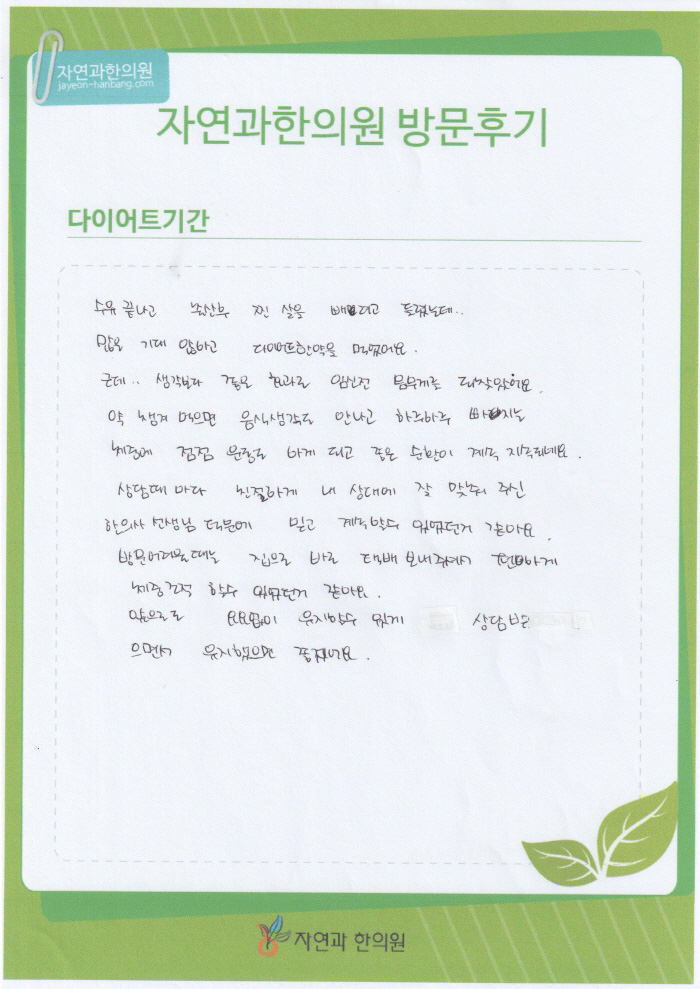 자연과한의원
jayeon-hanbang.com
자연과한의원 방문후기
다이어트기간
수유 끝나고 출산후 찐 살을 빼려고 들렸는데..
많은 기대 않하고 다이어트한약을 먹었어요.
근데.. 생각보다 좋은 효과로 임신전 몸무게로 되찾았어요.
약 챙겨 먹으면 음식생각도 안나고 하루하루 빠지는
체중에 점점 운동도 하게 되고 좋은 순환이 계속 지속되네요.
상담때 마다 친절하게 내 상태에 잘 맞춰 주신
한의사 선생님 덕분에 믿고 계속할수 있었던거 같아요.
방문어려울때는 집으로 바로 택배 보내주셔서 편하게
체중감량 할수 있었던거 같아요.
앞으로도 요요없이 유지할수 있게 상담받
으면서 유지했으면 좋겠어요.
자연과 한의원